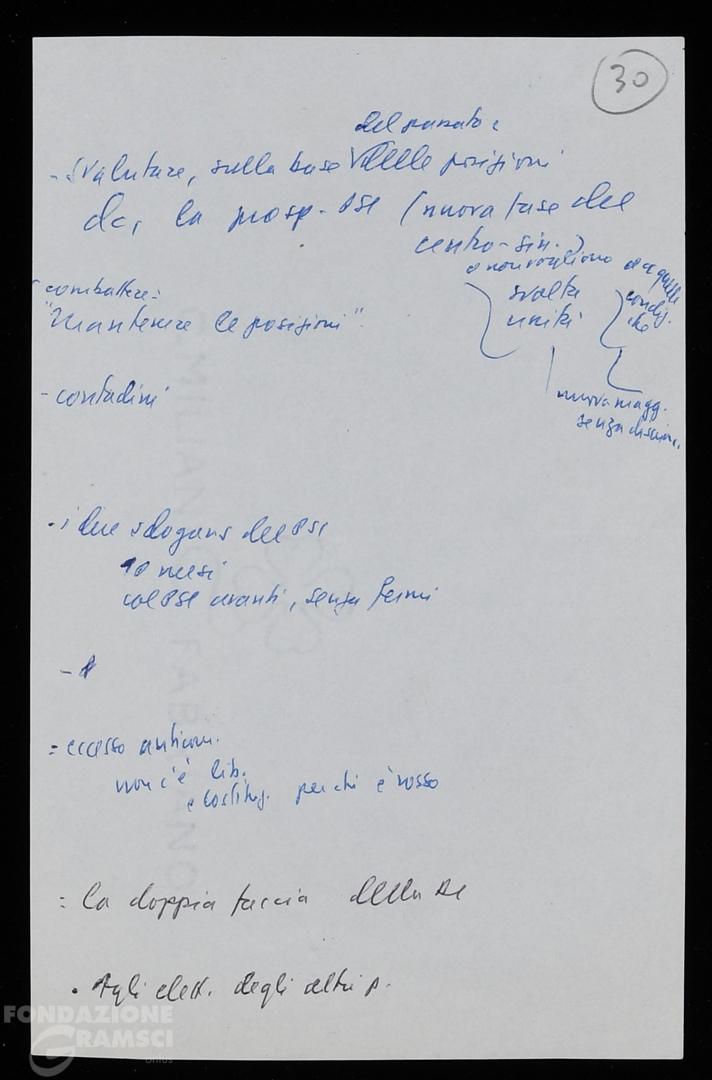 30
del passato e
- Svalutare, sulla base delle posizioni
dc, la prosp. PSI (nuova fase del
centro-sin.)
o non vogliono o a quelle
svolta condiz.
unità che
combattere:
"Mantenere le posizioni"
nuova magg.
senza discrim.
- contadini
- i due slogans del PSI
10 mesi
col PSI avanti, senza fermi
-
= eccesso anticom.
non c'è lib.
e costituz. per chi è rosso
= la doppia faccia della DC
• Agli elett. degli altri p.
C. MILIANI FABRIANO
FONDAZIONE
GRAMSCI
onlus